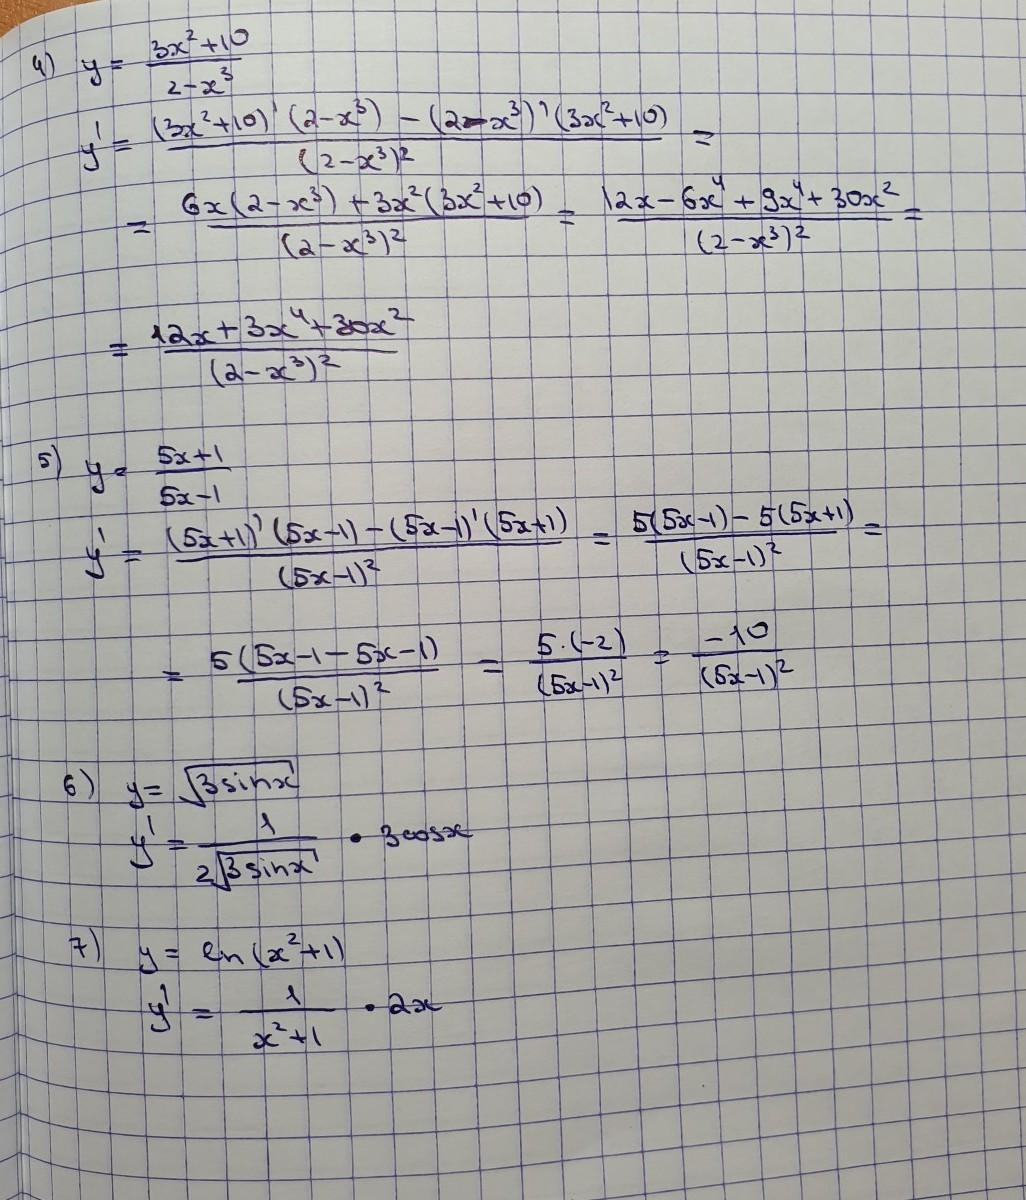 4) y = (3x²+10)/(2-x³)
y' = ((3x²+10)'(2-x³) - (2-x³)'(3x²+10))/(2-x³)² =
= (6x(2-x³) + 3x²(3x²+10))/(2-x³)² = (12x - 6x⁴ + 9x⁴ + 30x²)/(2-x³)² =
= (12x + 3x⁴ + 30x²)/(2-x³)²
5) y = (5x+1)/(5x-1)
y' = ((5x+1)'(5x-1) - (5x-1)'(5x+1))/(5x-1)² = (5(5x-1) - 5(5x+1))/(5x-1)² =
= (5(5x-1-5x-1))/(5x-1)² = (5·(-2))/(5x-1)² = (-10)/(5x-1)²
6) y = √(3sinx)
y' = 1/(2√(3sinx)) · 3cosx
7) y = ln(x²+1)
y' = 1/(x²+1) · 2x